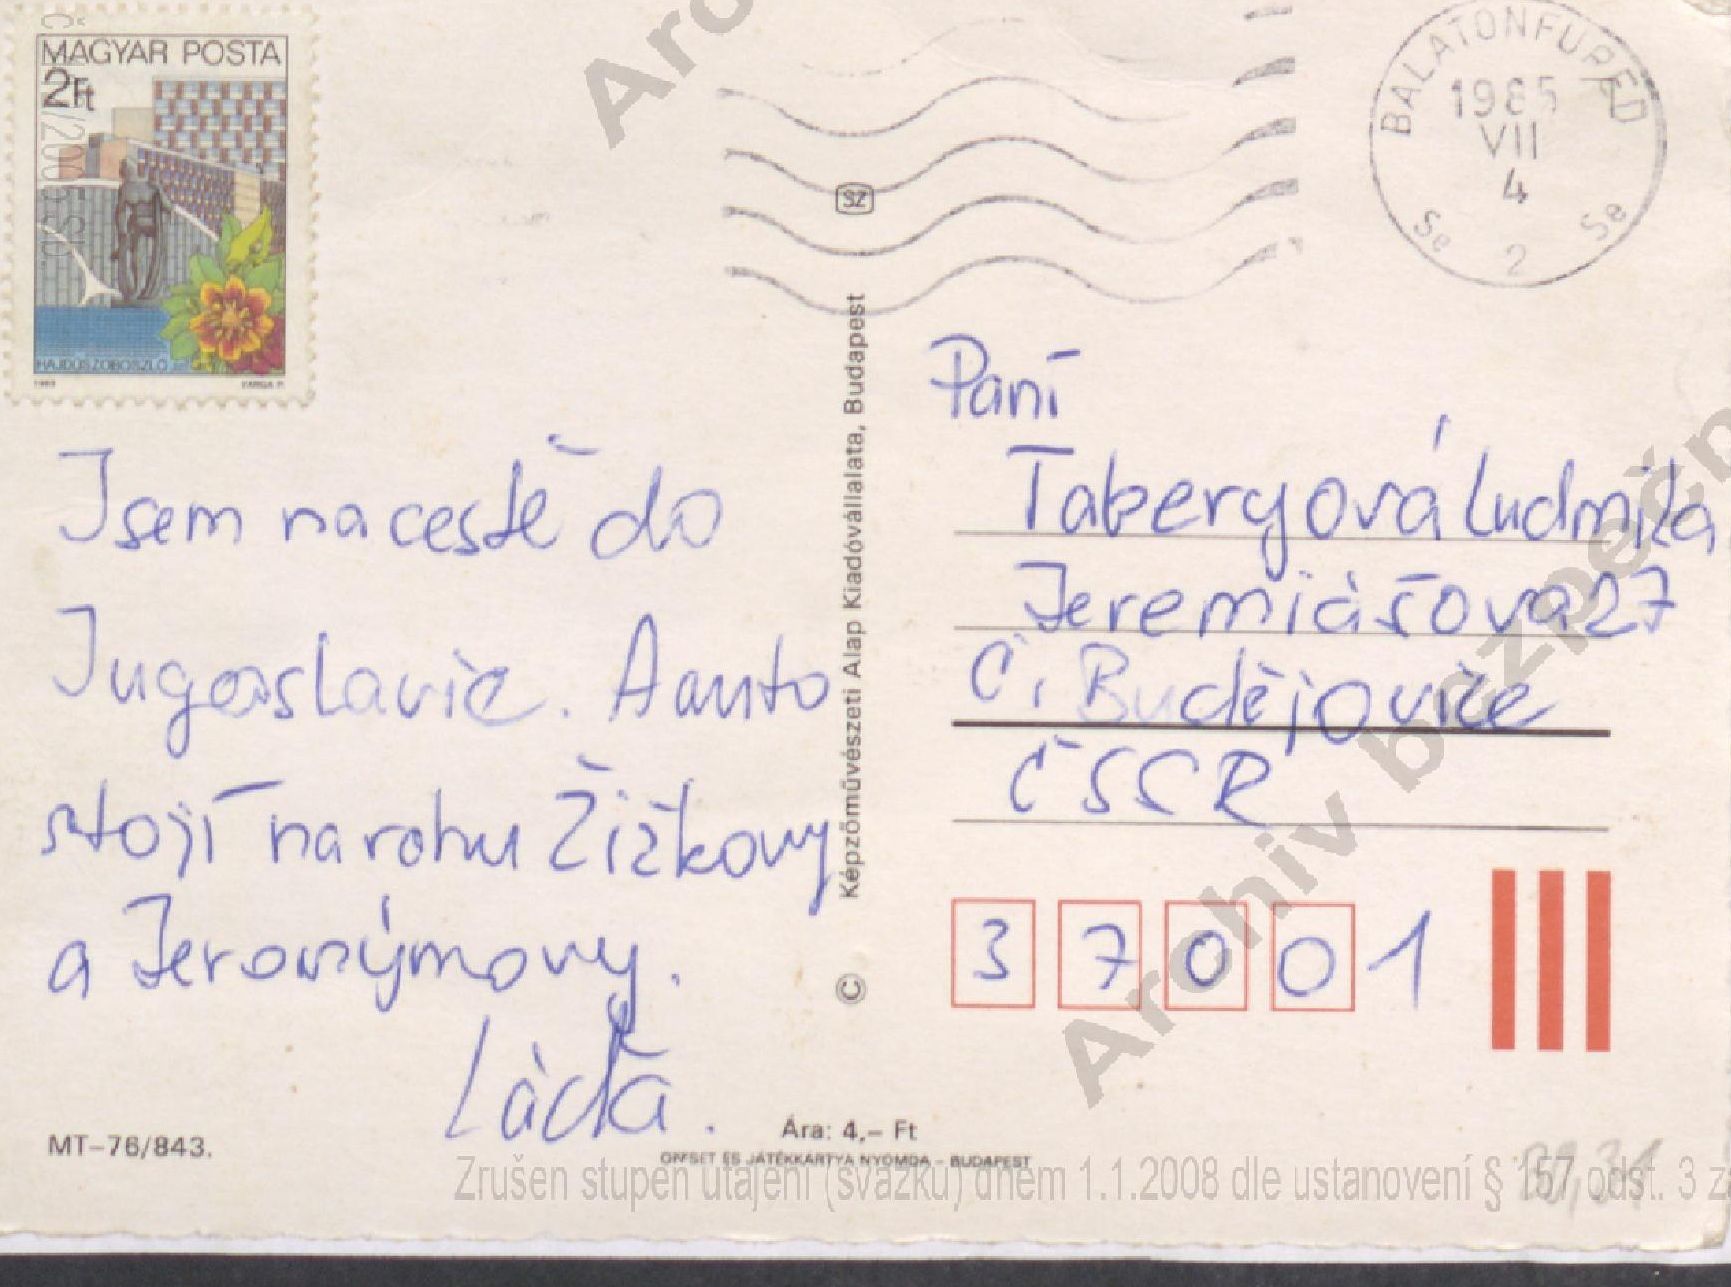 MAGYAR POSTA
2Ft
HAJDÚSZOBOSZLÓ
1983 VARGA P.
BALATONFÜRED
1985
VII
4
Se 2 Se
SZ
Jsem na cestě do
Jugoslavie. Aauto
stojí na rohu Žižkovy
a Jeronýmovy.
Láďa.
© Képzőművészeti Alap Kiadóvállalata, Budapest
Paní
Tabergová Ludmila
Jeremiášova 27
Č. Budějovice
ČSSR
37001
MT-76/843.
Ára: 4,- Ft
OFFSET ÉS JÁTÉKKÁRTYA NYOMDA - BUDAPEST
Archiv bezpečn
Zrušen stupeň utajení (svazku) dnem 1.1.2008 dle ustanovení § 157, odst. 3 z